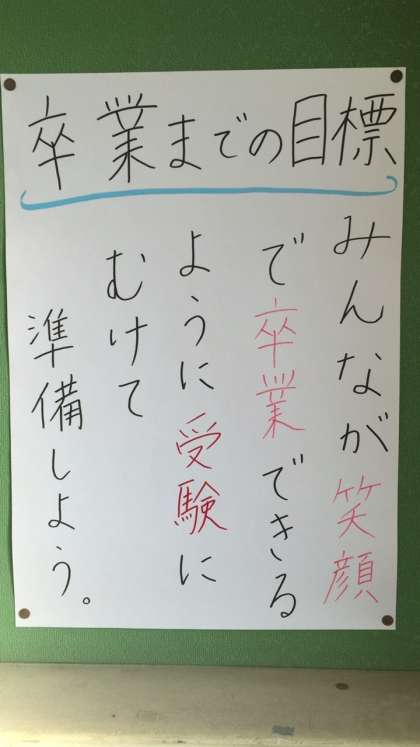 卒業までの目標
みんなが笑顔
で卒業できる
ように受験に
むけて
準備しよう。